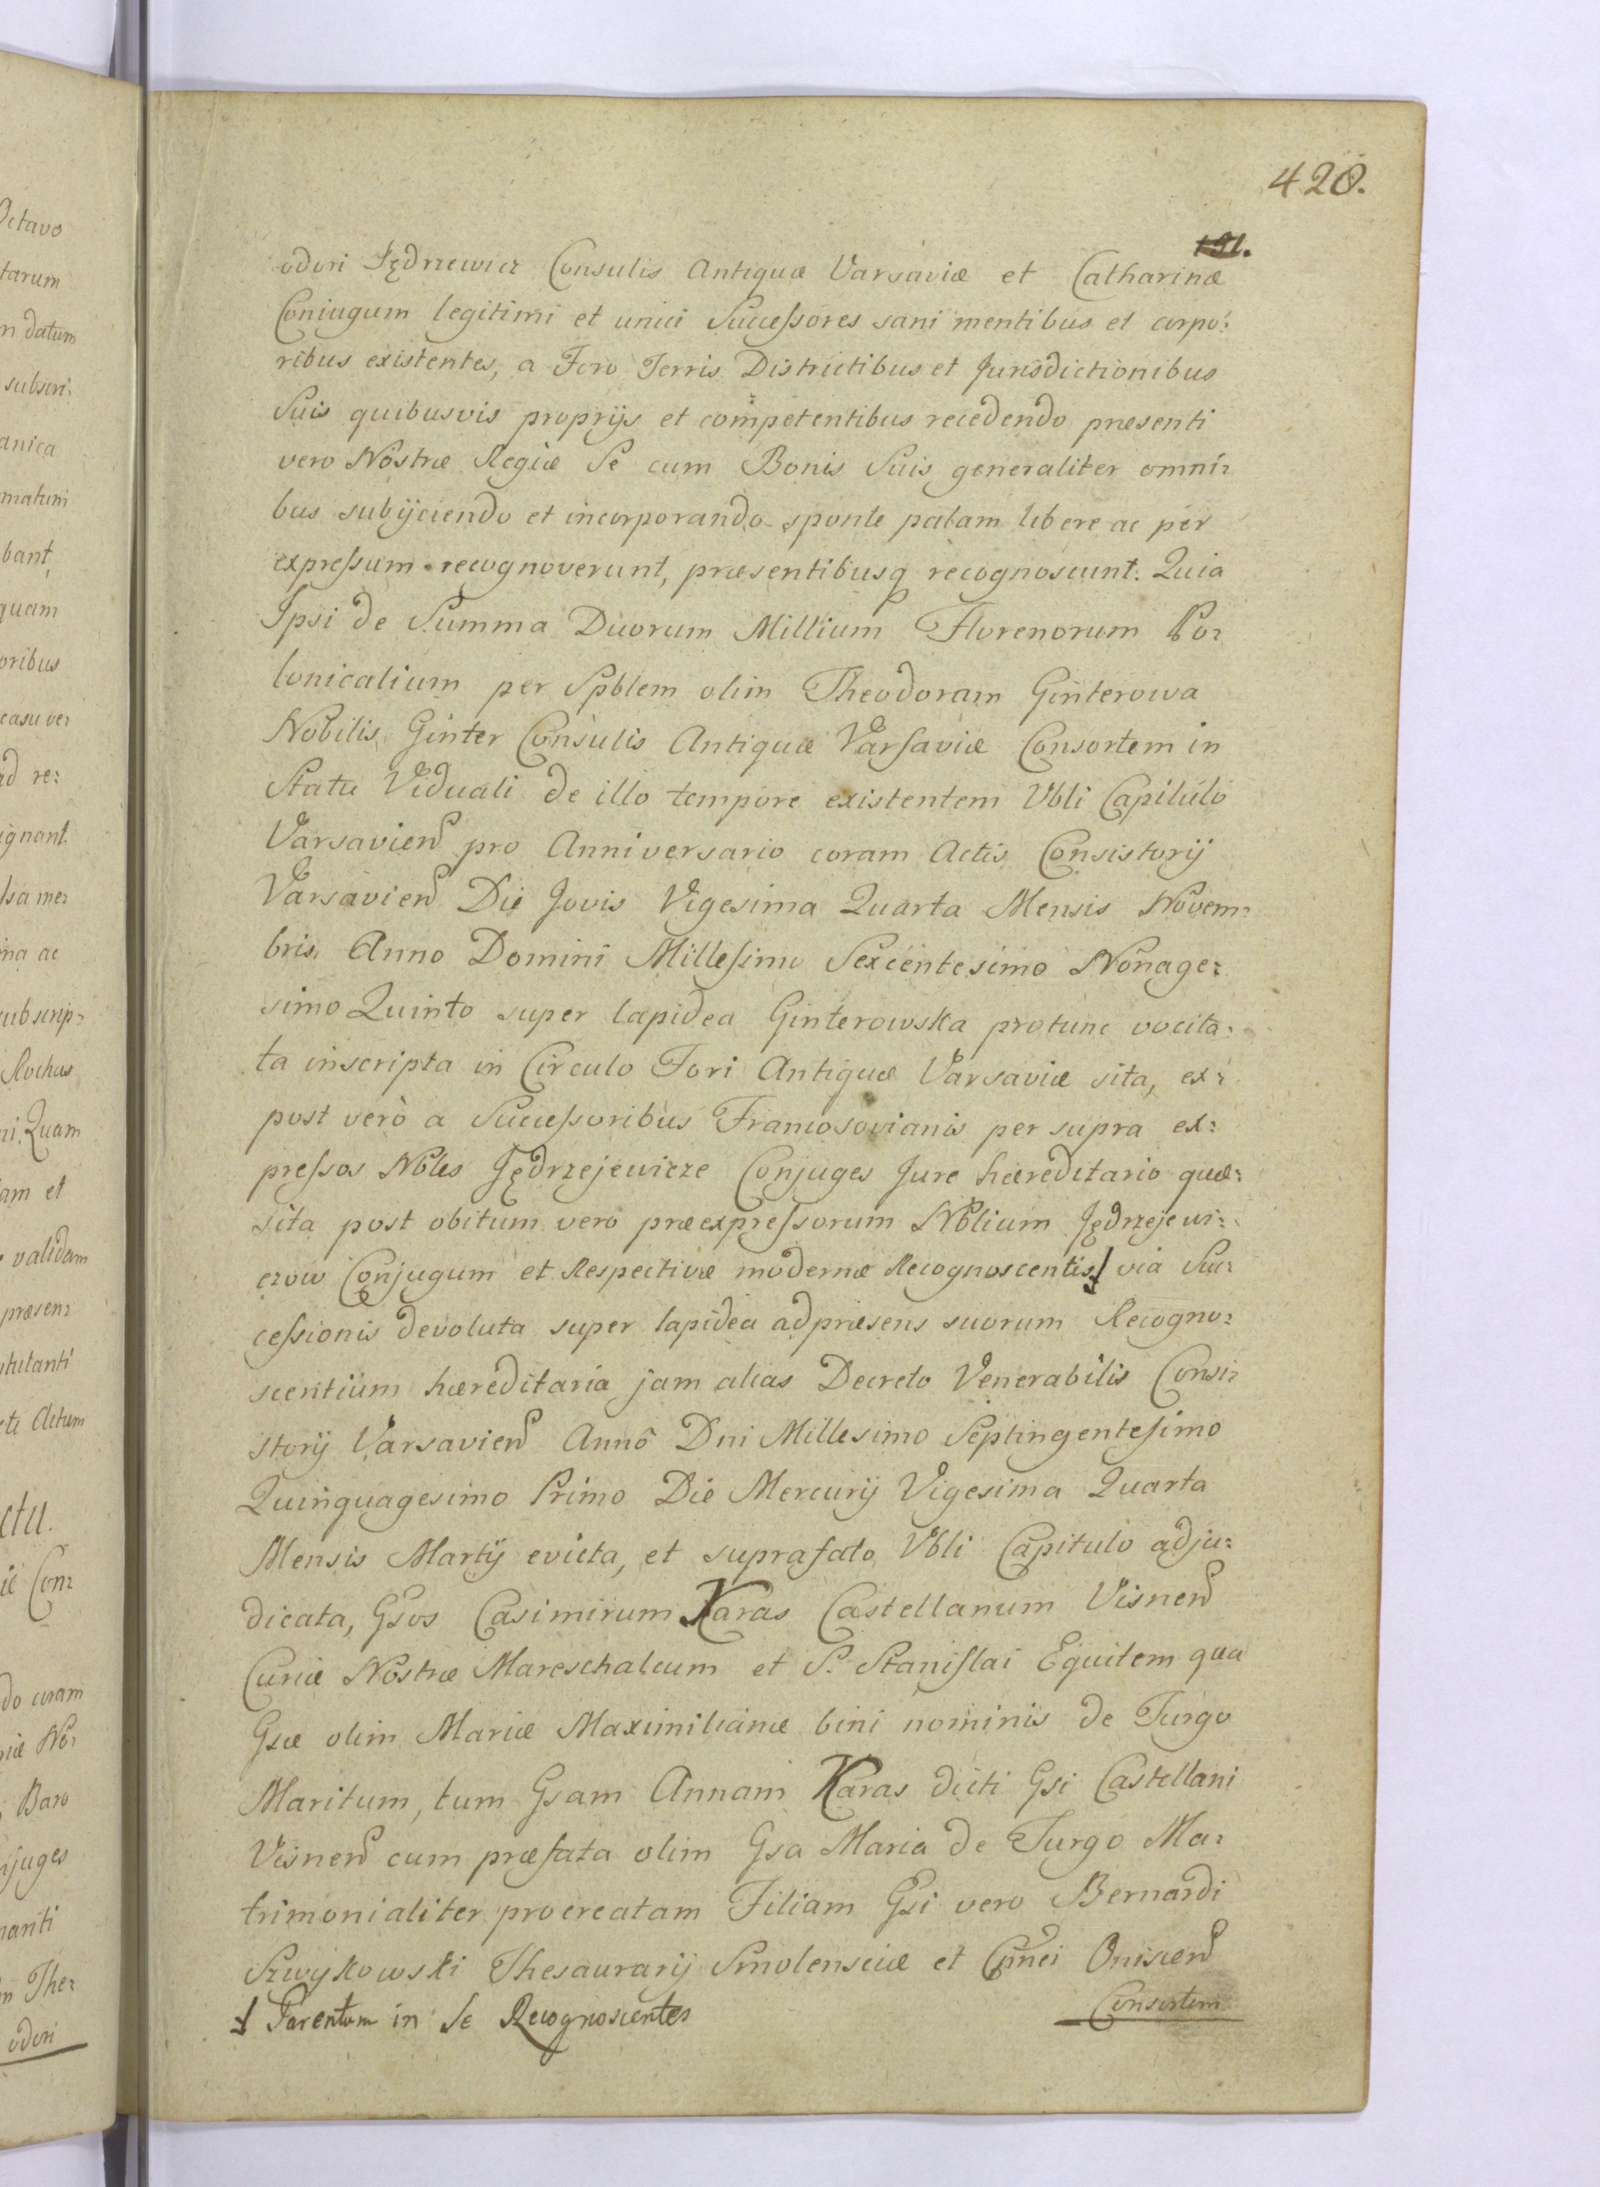 420.
191.
odori Jędrzewicz Consulis Antiquæ Varsaviæ et Catharinæ
Coniugum legitimi et unici Successores sani mentibus et corpo:
ribus existentes, a Foro Terris Districtibus et Jurisdictionibus
Suis quibusvis proprijs et competentibus recedendo præsenti
vero Nostræ Regiæ Se cum Bonis Suis generaliter omni:
bus subijciendo et incorporando sponte palam libere ac per
expressum recognoverunt, præsentibusq recognoscunt. Quia
Ipsi de Summa Duorum Millium Florenorum Po:
lonicalium per Spblem olim Theodoram Ginterowa
Nobilis Ginter Consulis Antiquæ Varsaviæ Consortem in
Statu Viduali de illo tempore existentem Vbli Capitulo
Varsavien pro Anniversario coram Actis Consistorij
Varsavien Die Jovis Vigesima Quarta Mensis Novem:
bris Anno Domini Millesimo Sexcentesimo Nonage:
simo Quinto super lapidea Ginterowska protunc vocita:
ta inscripta in Circulo Fori Antiquæ Varsaviæ sita, ex:
post verò a Successoribus Francosovianis per supra ex:
pressos Nbles Jędrzejewicze Conjuges Jure hæreditario quæ:
sita post obitum vero præexpressorum Nblium Jędrzejewi:
czow Conjugum et Respectivæ modernæ Recognoscentis via Suc:
cessionis devoluta super lapidea adpræsens suorum Recogno:
scentium hæreditaria jam alias Decreto Venerabilis Consi:
storij Varsavien Anno Dni Millesimo Septingentesimo
Quinquagesimo Primo Die Mercurij Vigesima Quarta
Mensis Martij evicta, et suprafato Vbli Capitulo adju:
dicata, Gsos Casimirum Karas Castellanum Visnen
Curiæ Nostræ Mareschalcum et S. Stanislai Equitem qua
Gsæ olim Mariæ Maximilianæ bini nominis de Turgo
Maritum, tum Gsam Annam Karas dicti Gsi Castellani
Visnen cum præfata olim Gsa Maria de Turgo Ma:
trimonialiter procreatam Filiam Gsi vero Bernardi
Szwykowski Thesaurarij Smolensciæ et Cpnei Onixen
Consortem
Parentum in se Recognoscentes
Octavo
tarum
n datum
subscri:
anica
bant
quam
oribus
casu ve:
ad re:
ignant
ina ac
subscrip:
Rochus
ni. Quam
am et
validam
præsen:
Actum
ctu.
Con:
do coram
No:
Baro
njuges
nanti
m The:
odori